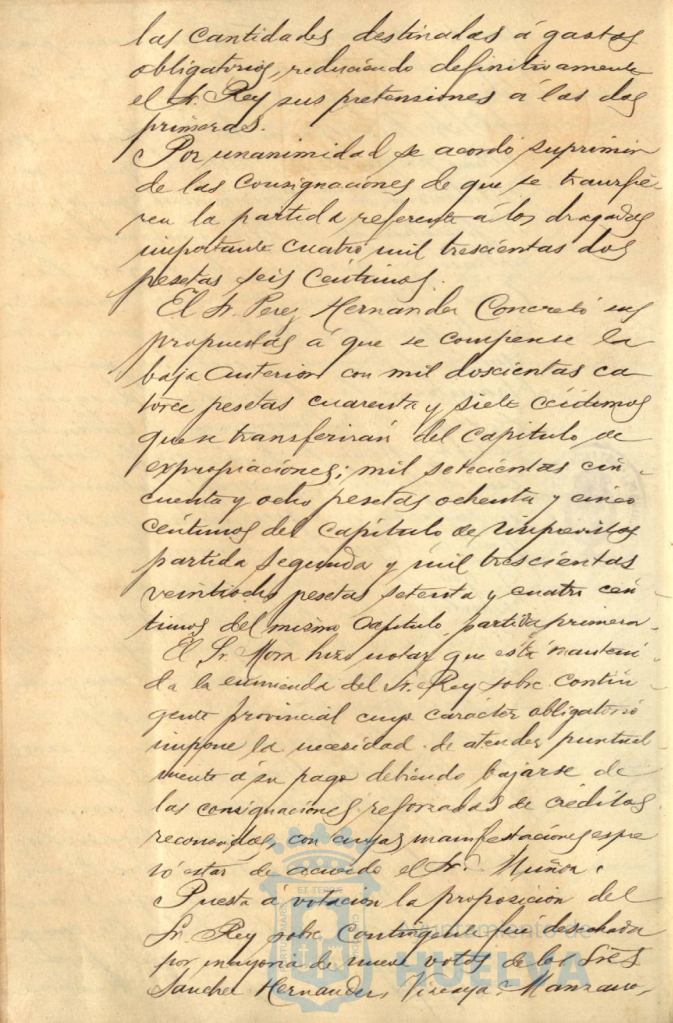 las cantidades destinadas á gastos
obligatorios, reduciendo definitivamente
el Sr. Rey sus pretensiones á las dos
primeras.
Por unanimidad se acordó suprimir
de las Consignaciones de que se transfie-
ren la partida referente á los dragados
importante cuatro mil trescientas dos
pesetas seis Céntimos.
El Sr. Perez Hernandez Concretó sus
propuestas á que se compense la
baja anterior con mil doscientas ca
torce pesetas cuarenta y siete céntimos
que se transferirán del Capitulo de
expropiaciones; mil setecientas cin-
cuenta y ocho pesetas ochenta y cinco
céntimos del Capítulo de imprevistos
partida segunda y mil trescientas
veintiocho pesetas setenta y cuatro cén-
timos del mismo Capitulo, partida primera.
El Sr. Mora hizo notar que está manteni-
da la enmienda del Sr. Rey sobre Contin-
gente provincial cuyo carácter obligatorio
impone la necesidad de atender puntual
mente á su pago debiendo bajarse de
las consignaciones reforzadas de créditos
reconocidos, con cuyas manifestaciones expre
só estar de acuerdo el Sr. Muñoz.
Puesta á votación la proposición del
Sr. Rey sobre Contingente fué desechada
por mayoria de nueve votos de los Sres
Sanchez Hernandez, Vizcaya, Manzano,
HUELVA